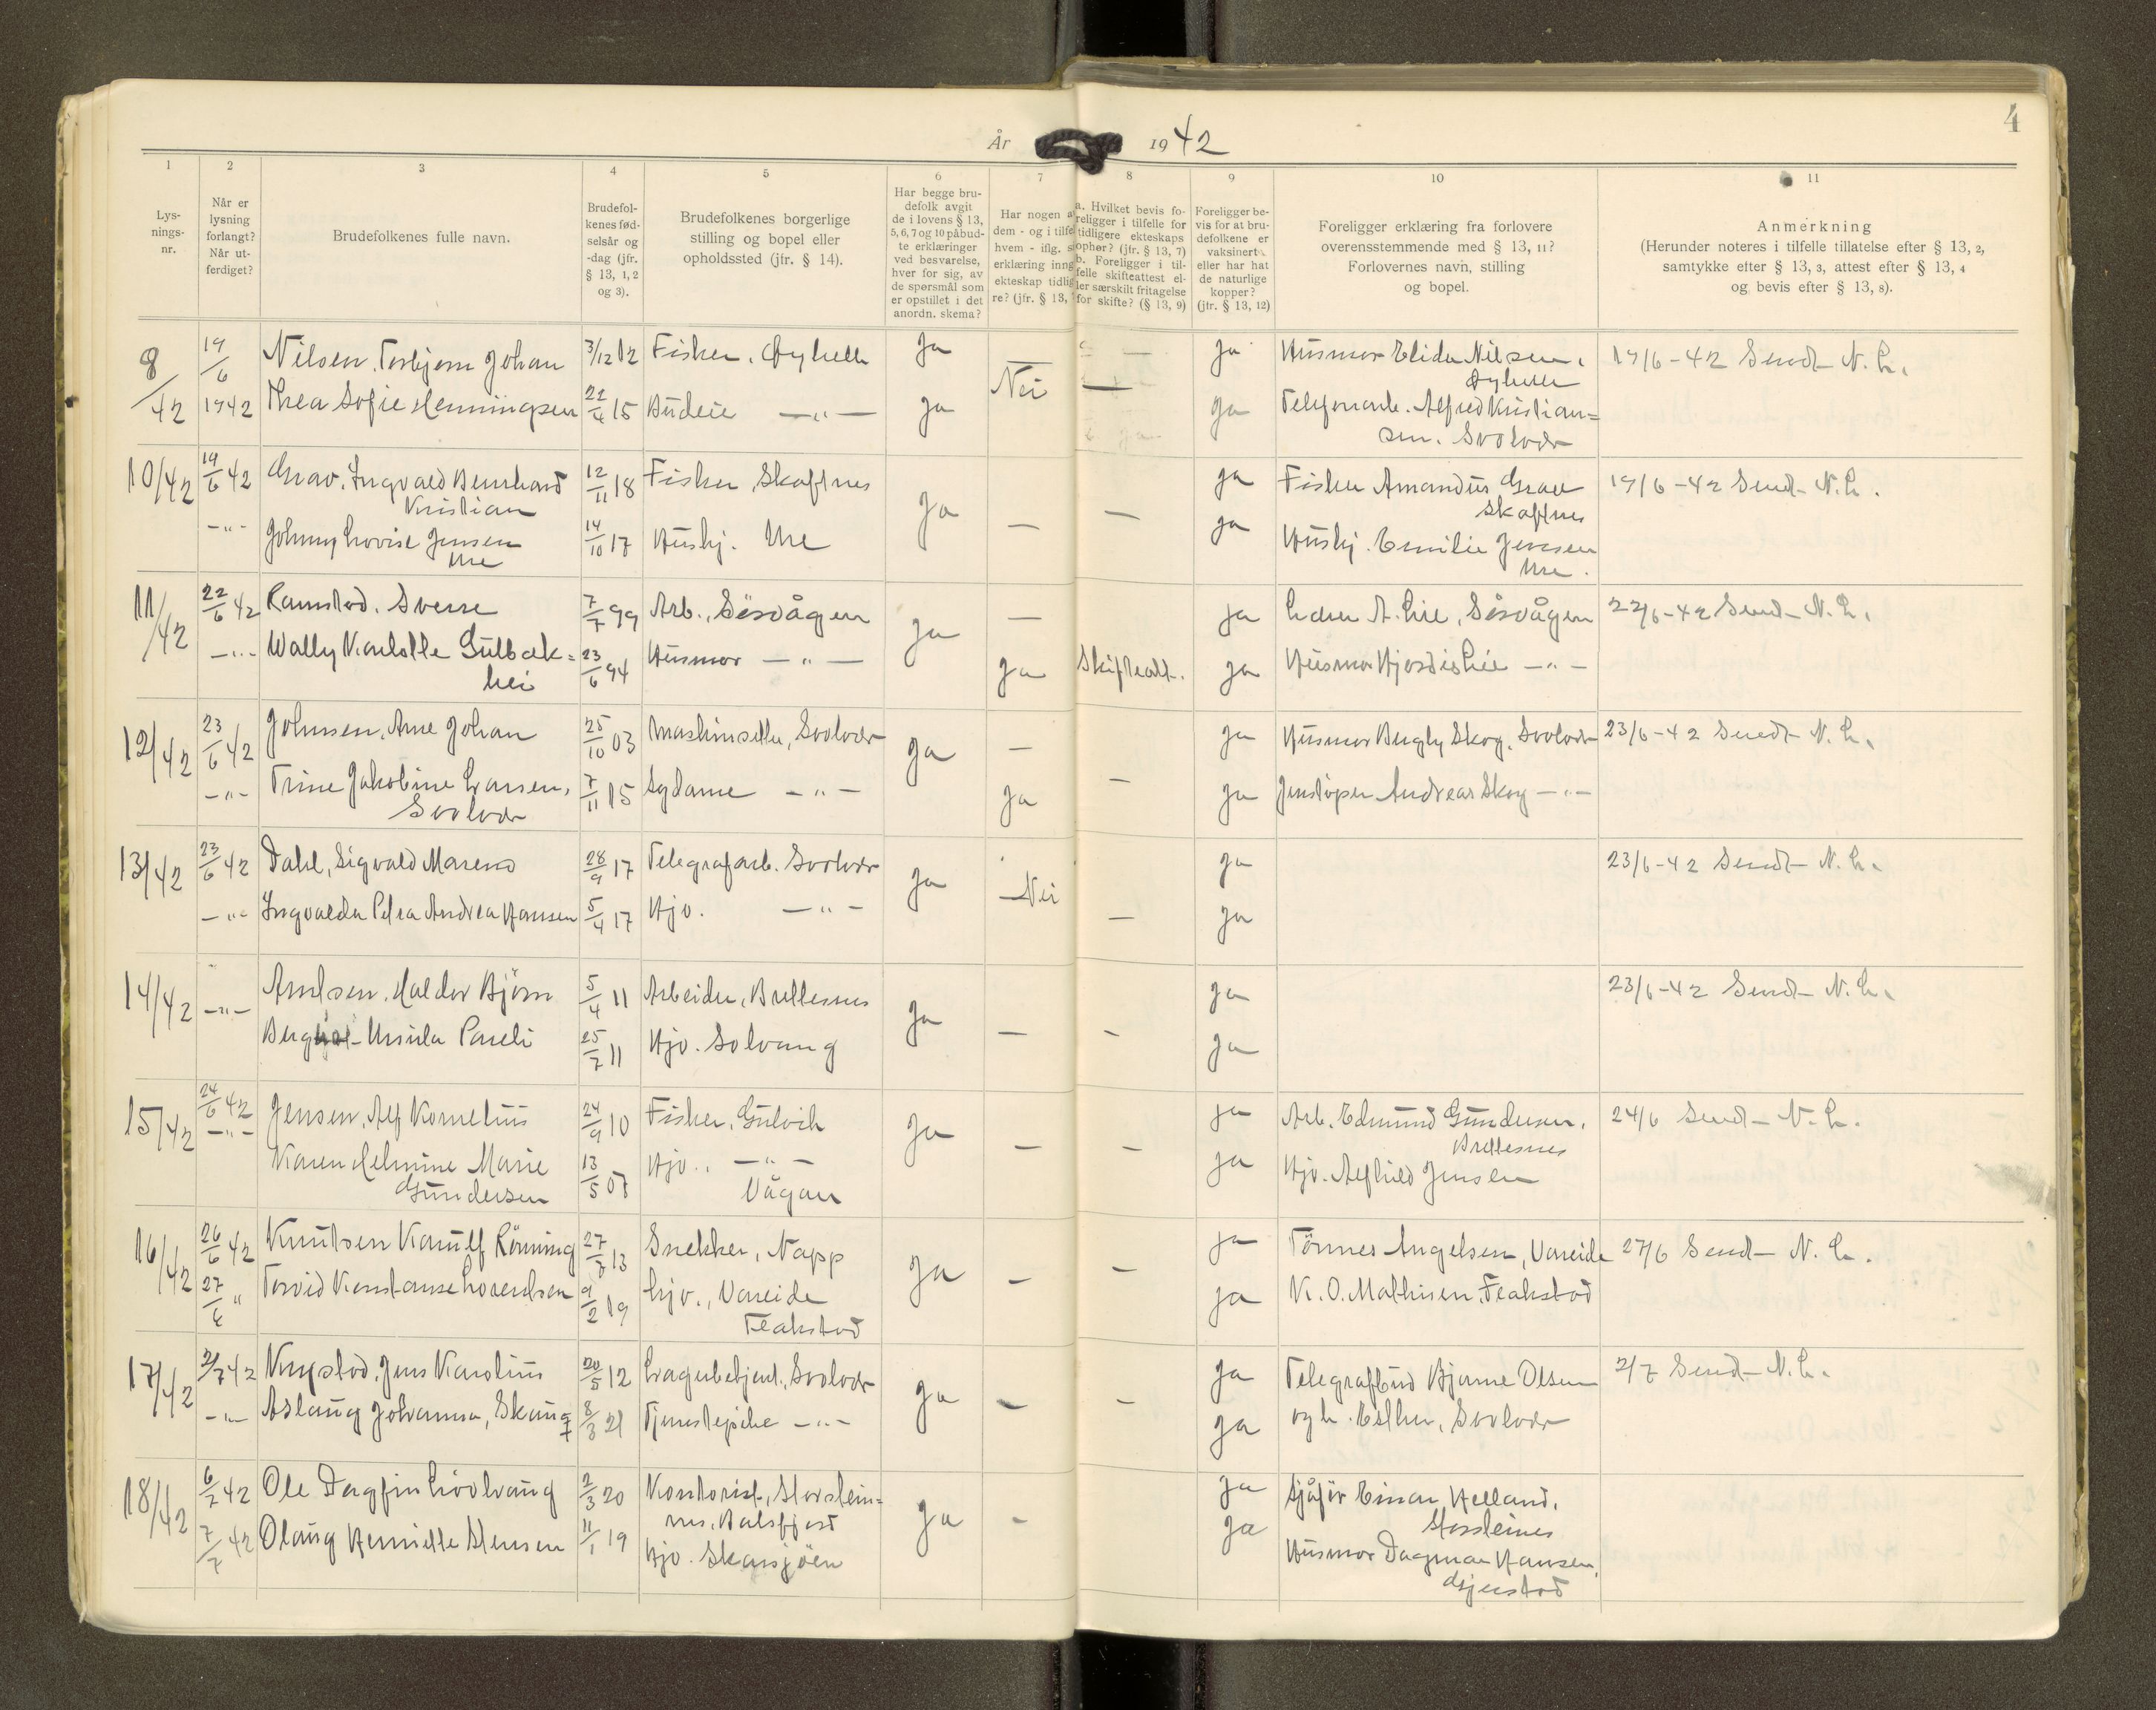 4
År 1942
1 2 3 4 5 6 7 8 9 10 11
Lys-
nings-
nr.
Når er
lysning
forlangt?
Når ut-
ferdiget?
Brudefolkenes fulle navn.
Brudefol-
kenes fød-
selsår og
-dag (jfr.
§ 13, 1, 2
og 3).
Brudefolkenes borgerlige
stilling og bopel eller
opholdssted (jfr. § 14).
Har begge bru-
defolk avgit
de i lovens § 13,
5, 6, 7 og 10 påbud-
te erklæringer
ved besvarelse,
hver for sig, av
de spørsmål som
er opstillet i det
anordn. skema?
Har nogen a
dem - og i tilfe
hvem - iflg. s
erklæring inng
ekteskap tidlig
re? (jfr. § 13,
a. Hvilket bevis fo-
religger i tilfelle for
tidligere ekteskaps
ophør? (jfr. § 13, 7)
b. Foreligger i til-
felle skifteattest el-
ler særskilt fritagelse
for skifte? (§ 13, 9)
Foreligger be-
vis for at bru-
defolkene er
vaksinert
eller har hat
de naturlige
kopper?
(jfr. § 13, 12)
Foreligger erklæring fra forlovere
overensstemmende med § 13, 11?
Forlovernes navn, stilling
og bopel.
Anmerkning
(Herunder noteres i tilfelle tillatelse efter § 13, 2,
samtykke efter § 13, 3, attest efter § 13, 4
og bevis efter § 13, 8).
8/42 19/6 1942 Nilsen, Torbjørn Johan 3/12 12 Fisker, Ja — Ja Husmor Elida Nilsen,
Thea Sofie Henningsen 22/4 15 Budeie —"— Ja Nei — Ja Telefonarb. Alfred Kristian=
sen. Svolvær
19/6-42 Sendt N. L.
10/42 19/6 42 Grav, Ingvald Bernhard
Kristian
12/11 18 Fisker, Skaftnes Ja — — Ja Fisker Amandus Grav
Skaftnes
19/6-42 Sendt N. L.
—"— Johnny Lovise Jensen
Ure
14/10 17 Hushj. Ure Ja Hushj. Emilie Jensen
Ure.
11/42 22/6 42 Ramstad, Sverre 7/7 99 Arb., Sørvågen Ja — Ja Lærer A. Lie, Sørvågen 22/6-42 Sendt N. L.
—"— Wally Karlotte Gulbæk=
hei
23/6 94 Husmor —"— Ja Skifteatt. Ja Husmor Hjørdis Lie —"—
12/42 23/6 42 Johnsen, Arne Johan 25/10 03 Maskinsetter, Svolvær Ja — Ja Husmor Bergly Skog, Svolvær 23/6-42 Sendt N. L.
—"— Trine Jakobine Larsen,
Svolvær
7/11 15 Sydame —"— Ja — Ja Jernstøper Andreas Skog —"—
13/42 23/6 42 Dahl, Sigvald Mareno 28/9 17 Telegrafarb. Svolvær Ja — Nei Ja 23/6-42 Sendt N. L.
—"— Ingvalda Petra Andrea Hansen 5/4 17 Hjv. —"— — Ja
14/42 —"— Haldor Bjørn 5/4 11 Arbeider, Brettesnes Ja — — Ja 23/6-42 Sendt N. L.
Ursula Pareli 25/7 11 Hjv. Solvang Ja
15/42 24/6 42 —"— Jensen, Alf Kornelius 24/9 10 Fisker, Gulvik Ja — — Ja Arb. Edmund Gundersen,
Brettesnes
24/6 Sendt N. L.
Karen Helmine Marie
Gundersen
13/5 08 Hjv., —"—
Vågan
Ja Hjv. Alfhild Jensen
16/42 26/6 42 Knutsen Ranulf Rönning 27/8 13 Snekker, Napp Ja — — Ja Tönnes Angelsen, Vareide 27/6 Sendt N. L.
27/6 " Torvid Konstanse Lorentsen 9/2 19 hjv., Vareide
Flakstad
Ja K. O. Mathisen, Flakstad
17/42 2/7 42 Knystad, Jens Karolius 20/5 12 Lagerbetjent, Svolvær Ja — — Ja Telegrafbud Bjarne Olsen 2/7 Sendt N. L.
—"— Aslaug Johanna, Skaug 8/3 21 Tjenestepike —"— Ja og h. Esther, Svolvær
18/42 6/7 42 Ole Dagfin 2/3 20 Kontorist, Storstein=
nes, Balsfjord
Ja — Ja Sjåför Einar Helland,
Storsteines
7/7 42 Olaug Henriette Stensen 11/1 19 Hjv. Skarsjöen Ja Husmor Dagmar Hansen,
Gjerstad